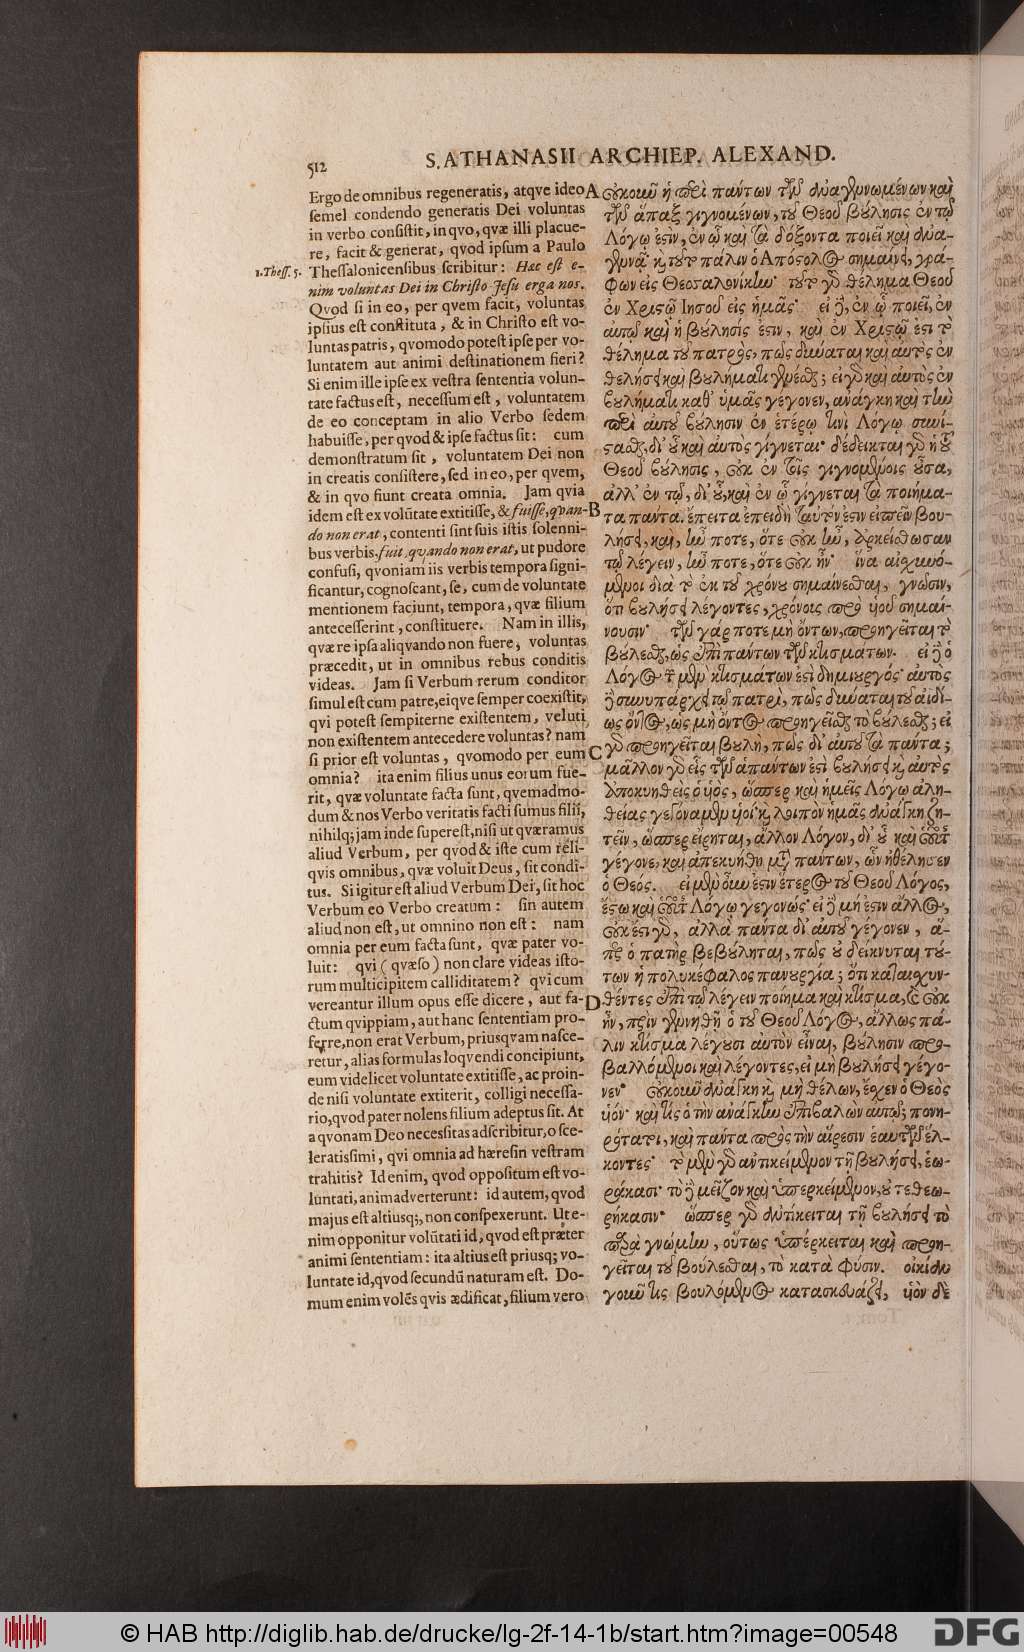 512
S. ATHANASII ARCHIEP. ALEXAND.
Ergo de omnibus regeneratis, atqve ideo
semel condendo generatis Dei voluntas
in verbo consistit, in qvo, qvæ illi placue-
re, facit & generat, qvod ipsum a Paulo
1. Thess. 5.
Thessalonicensibus scribitur: Hæc est e-
nim voluntas Dei in Christo Jesu erga nos.
Qvod si in eo, per qvem facit, voluntas
ipsius est constituta, & in Christo est vo-
luntas patris, qvomodo potest ipse per vo-
luntatem aut animi destinationem fieri?
Si enim ille ipse ex vestra sententia volun-
tate factus est, necessum est, voluntatem
de eo conceptam in alio Verbo sedem
habuisse, per qvod & ipse factus sit: cum
demonstratum sit, voluntatem Dei non
in creatis consistere, sed in eo, per qvem,
& in qvo fiunt creata omnia. Jam qvia
idem est ex volūtate extitisse, & fuisse, qvan-
do non erat, contenti sint suis istis solenni-
bus verbis, fuit, qvando non erat, ut pudore
confusi, qvoniam iis verbis tempora signi-
ficantur, cognoscant, se, cum de voluntate
mentionem faciunt, tempora, qvæ filium
antecesserint, constituere. Nam in illis,
qvæ re ipsa aliqvando non fuere, voluntas
præcedit, ut in omnibus rebus conditis
videas. Jam si Verbum rerum conditor
simul est cum patre, eiqve semper coexistit,
qvi potest sempiterne existentem, veluti
non existentem antecedere voluntas? nam
si prior est voluntas, qvomodo per eum
omnia? ita enim filius unus eorum fue-
rit, qvæ voluntate facta sunt, qvemadmo-
dum & nos Verbo veritatis facti sumus filii,
nihilq; jam inde superest, nisi ut qværamus
aliud Verbum, per qvod & iste cum reli-
qvis omnibus, qvæ voluit Deus, sit condi-
tus. Si igitur est aliud Verbum Dei, sit hoc
Verbum eo Verbo creatum: sin autem
aliud non est, ut omnino non est: nam
omnia per eum facta sunt, qvæ pater vo-
luit: qvi (qvæso) non clare videas isto-
rum multicipitem calliditatem? qvi cum
vereantur illum opus esse dicere, aut fa-
ctum qvippiam, aut hanc sententiam pro-
ferre, non erat Verbum, priusqvam nasce-
retur, alias formulas loqvendi concipiunt,
eum videlicet voluntate extitisse, ac proin-
de nisi voluntate extiterit, colligi necessa-
rio, qvod pater nolens filium adeptus sit. At
a qvonam Deo necessitas adscribitur, o sce-
leratissimi, qvi omnia ad hæresin vestram
trahitis? Id enim, qvod oppositum est vo-
luntati, animadverterunt: id autem, qvod
majus est altiusq;, non conspexerunt. Ut e-
nim opponitur volūtati id, qvod est præter
animi sententiam: ita altius est priusq; vo-
luntate id, qvod secundū naturam est. Do-
mum enim volēs qvis ædificat, filium vero
A
B
C
D
Οὐκοῦν ἡ περὶ πάντων τῶν ἀναγεννωμένων καὶ
τῶν ἅπαξ γιγνομένων, τοῦ Θεοῦ βούλησις ἐν τῷ
Λόγῳ ἐστιν, ἐν ᾧ καὶ τὰ δόξοντα ποιεῖ καὶ ἀνα-
γεννᾷ· κ̀ τοῦτο πάλιν ὁ Ἀπόστολος σημαίνει, γρά-
φων εἰς Θεσσαλονίκην· τοῦτο γὰρ θέλημα Θεοῦ
ἐν Χριστῷ Ἰησοῦ εἰς ἡμᾶς· εἰ δὲ, ἐν ᾧ ποιεῖ, ἐν
αὐτῷ καὶ ἡ βούλησίς ἐστιν, καὶ ἐν Χριστῷ ἐστι τὸ
θέλημα τοῦ πατρὸς, πῶς δύναται καὶ αὐτὸς ἐν
θελήσει καὶ βουλήματι γενέσθαι; εἰ γὰρ καὶ αὐτὸς ἐν
βουλήματι καθ' ὑμᾶς γέγονεν, ἀνάγκη καὶ τὴν
περὶ αὐτοῦ βούλησιν ἐν ἑτέρῳ τινὶ Λόγῳ συνί-
στασθαι, δι' οὗ καὶ αὐτὸς γίγνεται· δέδεικται γὰρ ἡ τοῦ
Θεοῦ βούλησις, οὐκ ἐν τοῖς γιγνομένοις οὖσα,
ἀλλ' ἐν τῷ, δι' οὗ, καὶ ἐν ᾧ γίγνεται τὰ ποιήμα-
τα πάντα. ἔπειτα ἐπειδὴ ταὐτόν ἐστιν εἰπεῖν βου-
λήσει, καὶ, ἦν ποτε, ὅτε οὐκ ἦν, ἀρκείσθωσαν
τῷ λέγειν, ἦν ποτε, ὅτε οὐκ ἦν· ἵνα αἰσχυνό-
μενοι διὰ τὸ ἐκ τοῦ χρόνου σημαίνεσθαι, γνῶσιν,
ὅτι βουλήσει λέγοντες, χρόνοις πρὸ υἱοῦ σημαί-
νουσιν· τῶν γάρ ποτε μὴ ὄντων, προηγεῖται τὸ
βούλεσθαι, ὡς ἐπὶ πάντων τῶν κτισμάτων. εἰ δὲ ὁ
Λόγος τῶν μὲν κτισμάτων ἐστὶ δημιουργός· αὐτὸς
δὲ συνυπάρχει τῷ πατρὶ, πῶς δύναται τοῦ ἀϊδί-
ως ὄντος, ὡς μὴ ὄντος προηγεῖσθαι τὸ βούλεσθαι; εἰ
γὰρ προηγεῖται βουλὴ, πῶς δι' αὐτοῦ τὰ πάντα;
μᾶλλον γὰρ εἷς τῶν ἁπάντων ἐστὶ βουλήσει κ̀ αὐτὸς
ἀποκυηθεὶς ὁ υἱὸς, ὥσπερ καὶ ἡμεῖς Λόγῳ ἀλη-
θείας γεγόναμεν υἱοί· κ̀ λοιπὸν ἡμᾶς ἀνάγκη ζη-
τεῖν, ὥσπερ εἴρηται, ἄλλον Λόγον, δι' οὗ καὶ οὗτος
γέγονε, καὶ ἀπεκυήθη μετὰ πάντων, ὧν ἠθέλησεν
ὁ Θεός. εἰ μὲν οὖν ἐστιν ἕτερος τοῦ Θεοῦ Λόγος,
ἔστω καὶ οὗτος Λόγῳ γεγονώς· εἰ δὲ μή ἐστιν ἄλλος,
οὐκ ἔστι γὰρ, ἀλλὰ πάντα δι' αὐτοῦ γέγονεν, ἅ-
περ ὁ πατὴρ βεβούληται, πῶς οὐ δείκνυται τού-
των ἡ πολυκέφαλος πανουργία; ὅτι καταισχυν-
θέντες ἐπὶ τῷ λέγειν ποίημα καὶ κτίσμα, καὶ οὐκ
ἦν, πρὶν γεννηθῇ ὁ τοῦ Θεοῦ Λόγος, ἄλλως πά-
λιν κτίσμα λέγουσι αὐτὸν εἶναι, βούλησιν προ-
βαλλόμενοι καὶ λέγοντες, εἰ μὴ βουλήσει γέγο-
νεν· οὐκοῦν ἀνάγκῃ κ̀ μὴ θέλων, ἔσχεν ὁ Θεὸς
υἱόν· καὶ τίς ὁ τὴν ἀνάγκην ἐπιβαλὼν αὐτῷ; πονη-
ρότατοι, καὶ πάντα πρὸς τὴν αἵρεσιν ἑαυτῶν ἕλ-
κοντες· τὸ μὲν γὰρ ἀντικείμενον τῇ βουλήσει, ἑω-
ράκασι· τὸ δὲ μεῖζον καὶ ὑπερκείμενον, οὐ τεθεω-
ρήκασιν· ὥσπερ γὰρ ἀντίκειται τῇ βουλήσει τὸ
παρὰ γνώμην, οὕτως ὑπέρκειται καὶ προη-
γεῖται τοῦ βούλεσθαι, τὸ κατὰ φύσιν. οἰκίαν
γοῦν τὶς βουλόμενος κατασκευάζει, υἱὸν δὲ
© HAB http://diglib.hab.de/drucke/lg-2f-14-1b/start.htm?image=00548
DFG